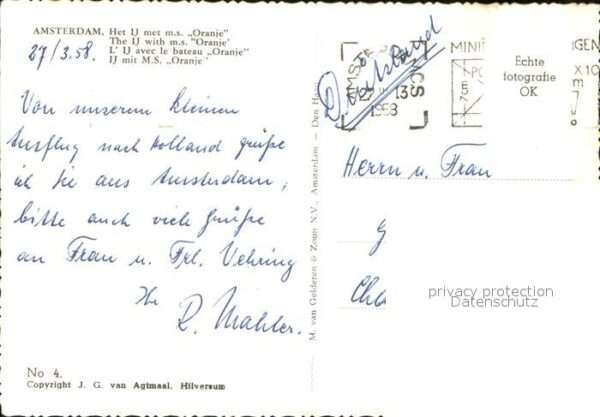 AMSTERDAM, Het IJ met m.s. „Oranje”
The IJ with m.s. "Oranje"
L' IJ avec le bateau „Oranje”
IJ mit M.S. „Oranje”
27/3.58.
Von unserem kleinen
Ausflug nach Holland grüße
ich Sie aus Amsterdam,
bitte auch viele Grüße
an Frau u. Frl. Vehring
Ihr
R. Mahler.
No 4.
Copyright J. G. van Agtmaal, Hilversum
M. van Gelderen & Zoon N.V., Amsterdam — Den Haag
Deutschland
AMSTER
13
1958
MINI
GEN
PO
X10
Echte
fotografie
OK
Herrn u. Frau
privacy protection
Datenschutz